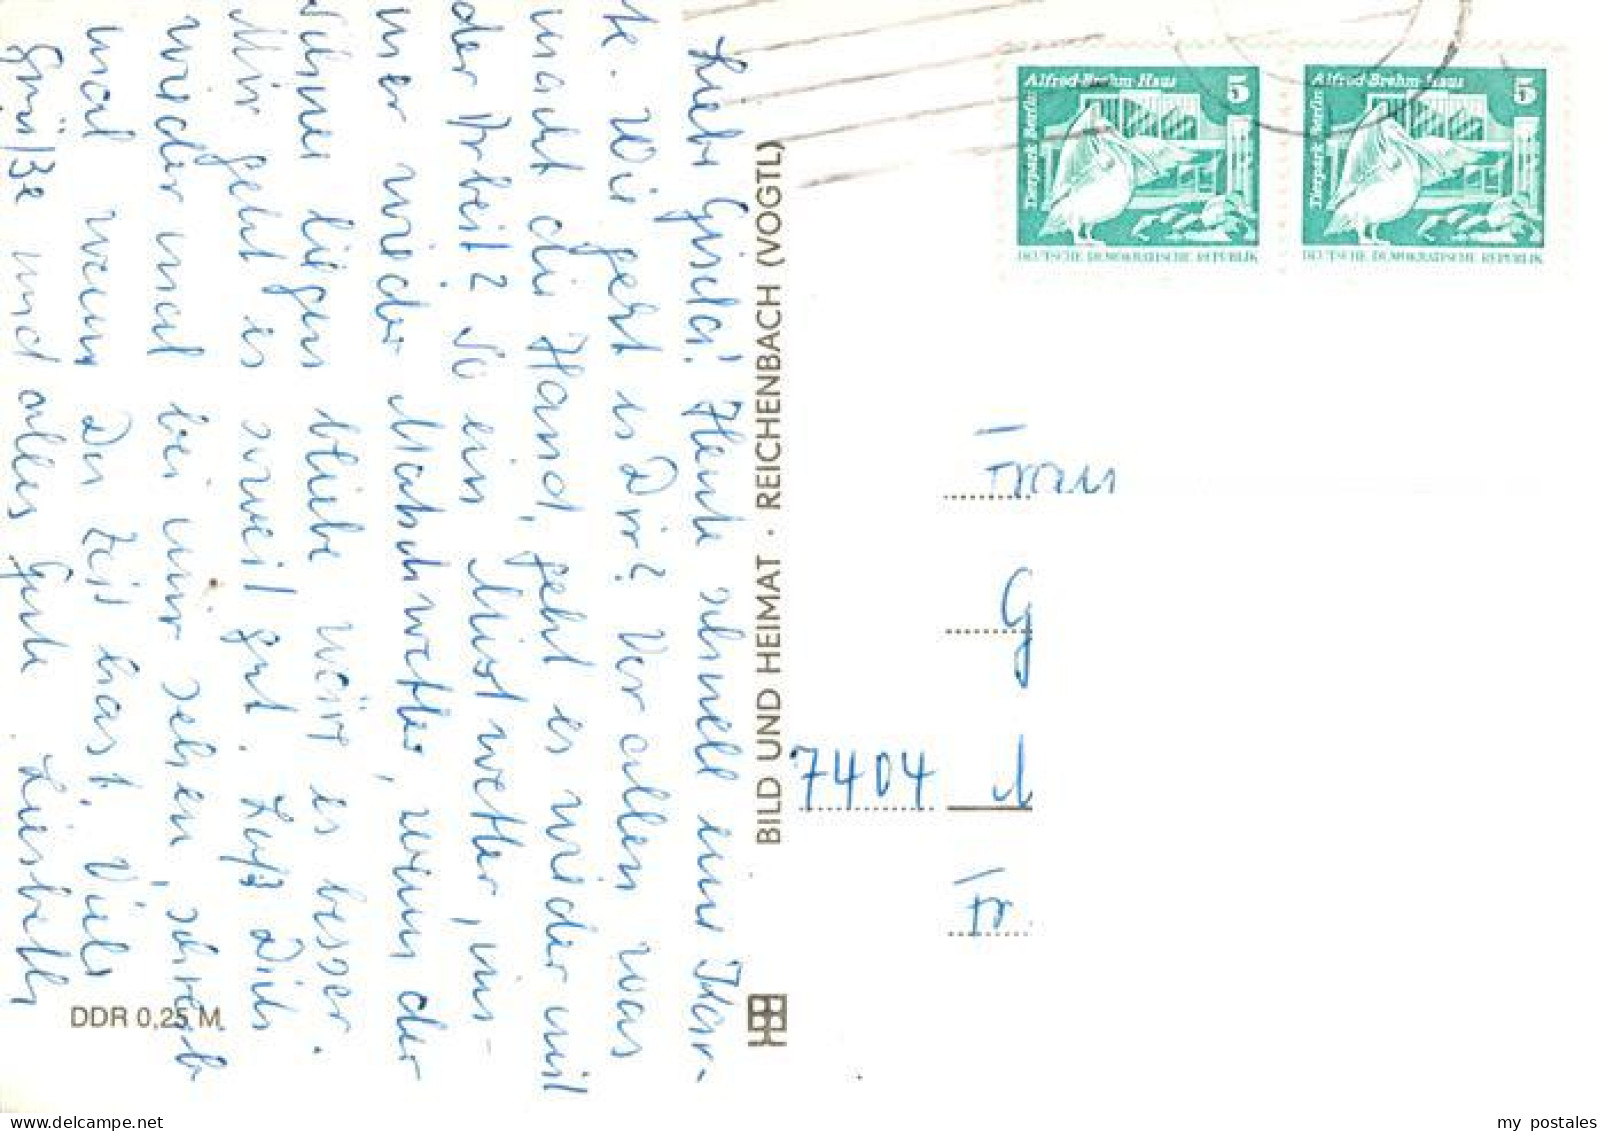 Liebe Gisela! Heute schnell eine Kar-
te. Wie geht es Dir? Vor allem was
macht die Hand, geht es wieder mit
der Arbeit? So ein Mistwetter, im-
mer wieder Matschwetter, wenn der
Schnee liegen bliebe wäre es besser.
Mir geht es soweit gut. Laß Dich
wieder mal bei mir sehen, schreib
mal wenn Du Zeit hast. Viele
Grüße und alles Gute Liesbeth
DDR 0,25 M
BILD UND HEIMAT · REICHENBACH (VOGTL)
Alfred-Brehm-Haus
5
Tierpark Berlin
DEUTSCHE DEMOKRATISCHE REPUBLIK
Alfred-Brehm-Haus
5
Tierpark Berlin
DEUTSCHE DEMOKRATISCHE REPUBLIK
Frau
G
7404
Fr.
delcampe.net
my postales